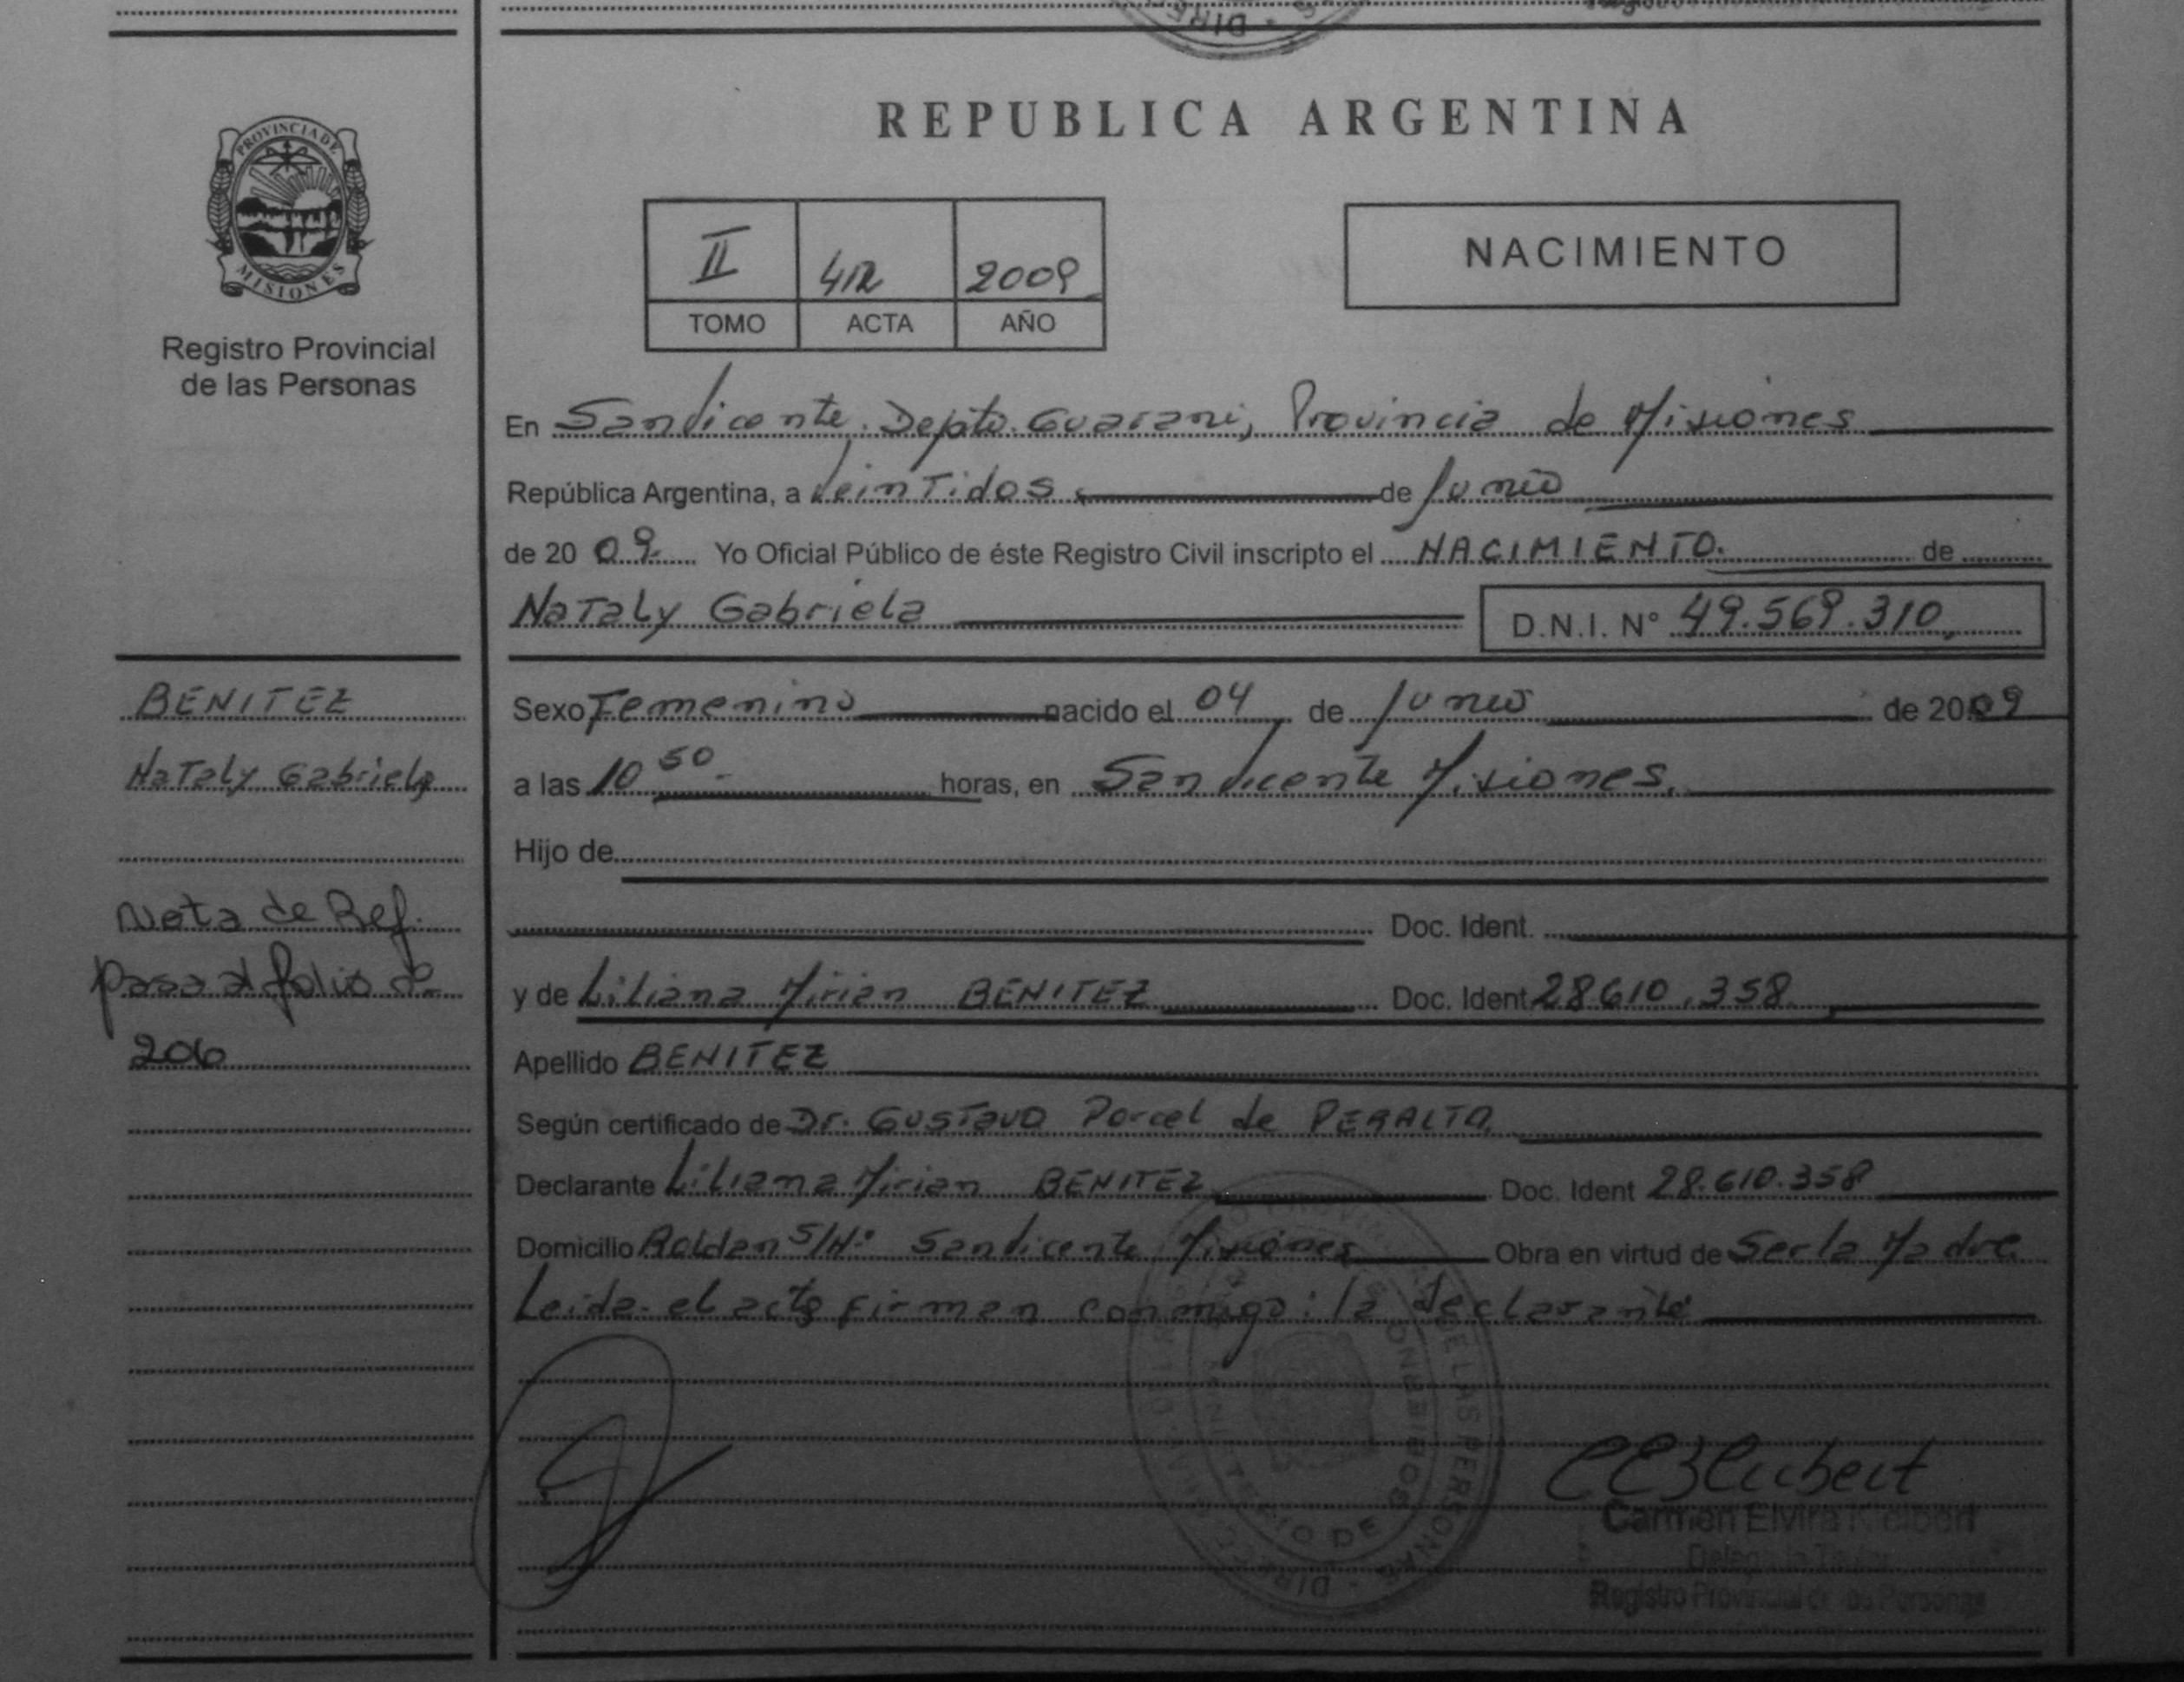 REPUBLICA ARGENTINA
PROVINCIA DE
MISIONES
Registro Provincial
de las Personas
II 412 2009
TOMO ACTA AÑO
NACIMIENTO
En San Vicente. Depto. Guarani, Provincia de Misiones
República Argentina, a Veintidos de Junio
de 20 09. Yo Oficial Público de éste Registro Civil inscripto el NACIMIENTO. de
Nataly Gabriela D.N.I. N° 49.569.310
BENITEZ
Nataly Gabriela
Nota de Ref.
pasa al folio
206
Sexo Femenino nacido el 04 de Junio de 2009
a las 10 50 horas, en San Vicente Misiones.
Hijo de
Doc. Ident.
y de Liliana Mirian BENITEZ Doc. Ident 28610.358
Apellido BENITEZ
Según certificado de Dr. Gustavo Porcel de PERALTA
Declarante Liliana Mirian BENITEZ Doc. Ident 28.610.358
Domicilio Roldan S/N° San Vicente Misiones Obra en virtud de Ser la Madre
Leida el acta firman conmigo: la declarante
Carmen Elvira
Registro Provincial de las Personas